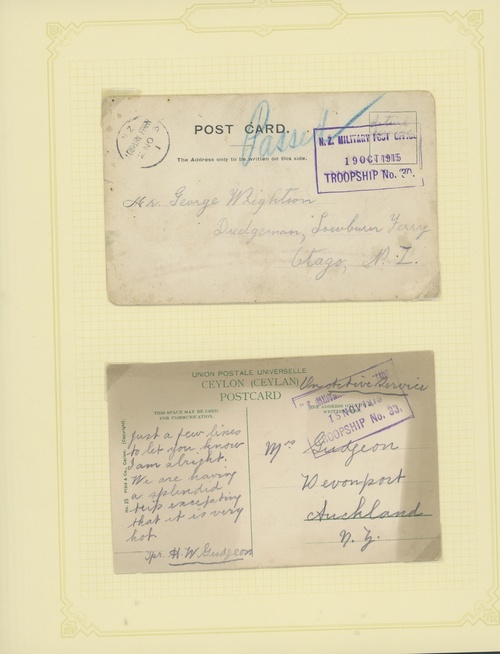 POST CARD.
Passed
The Address only to be written on this side.
N.Z. MILITARY POST OFFICE
19 OCT 1915
TROOPSHIP No.
Mr. George Wrightson
Dredgeman, Lowburn Ferry
Otago, N.Z.
UNION POSTALE UNIVERSELLE
CEYLON (CEYLAN)
POSTCARD
On Active Service
THIS SPACE MAY BE USED
FOR COMMUNICATION.
15 NOV 1915
TROOPSHIP No. 33.
Just a few lines
to let you know
I am alright.
We are having
a splendid
trip excepting
that it is very
hot
Tpr. H. W. Gudgeon
Mrs Gudgeon
Devonport
Auckland
N.Z.